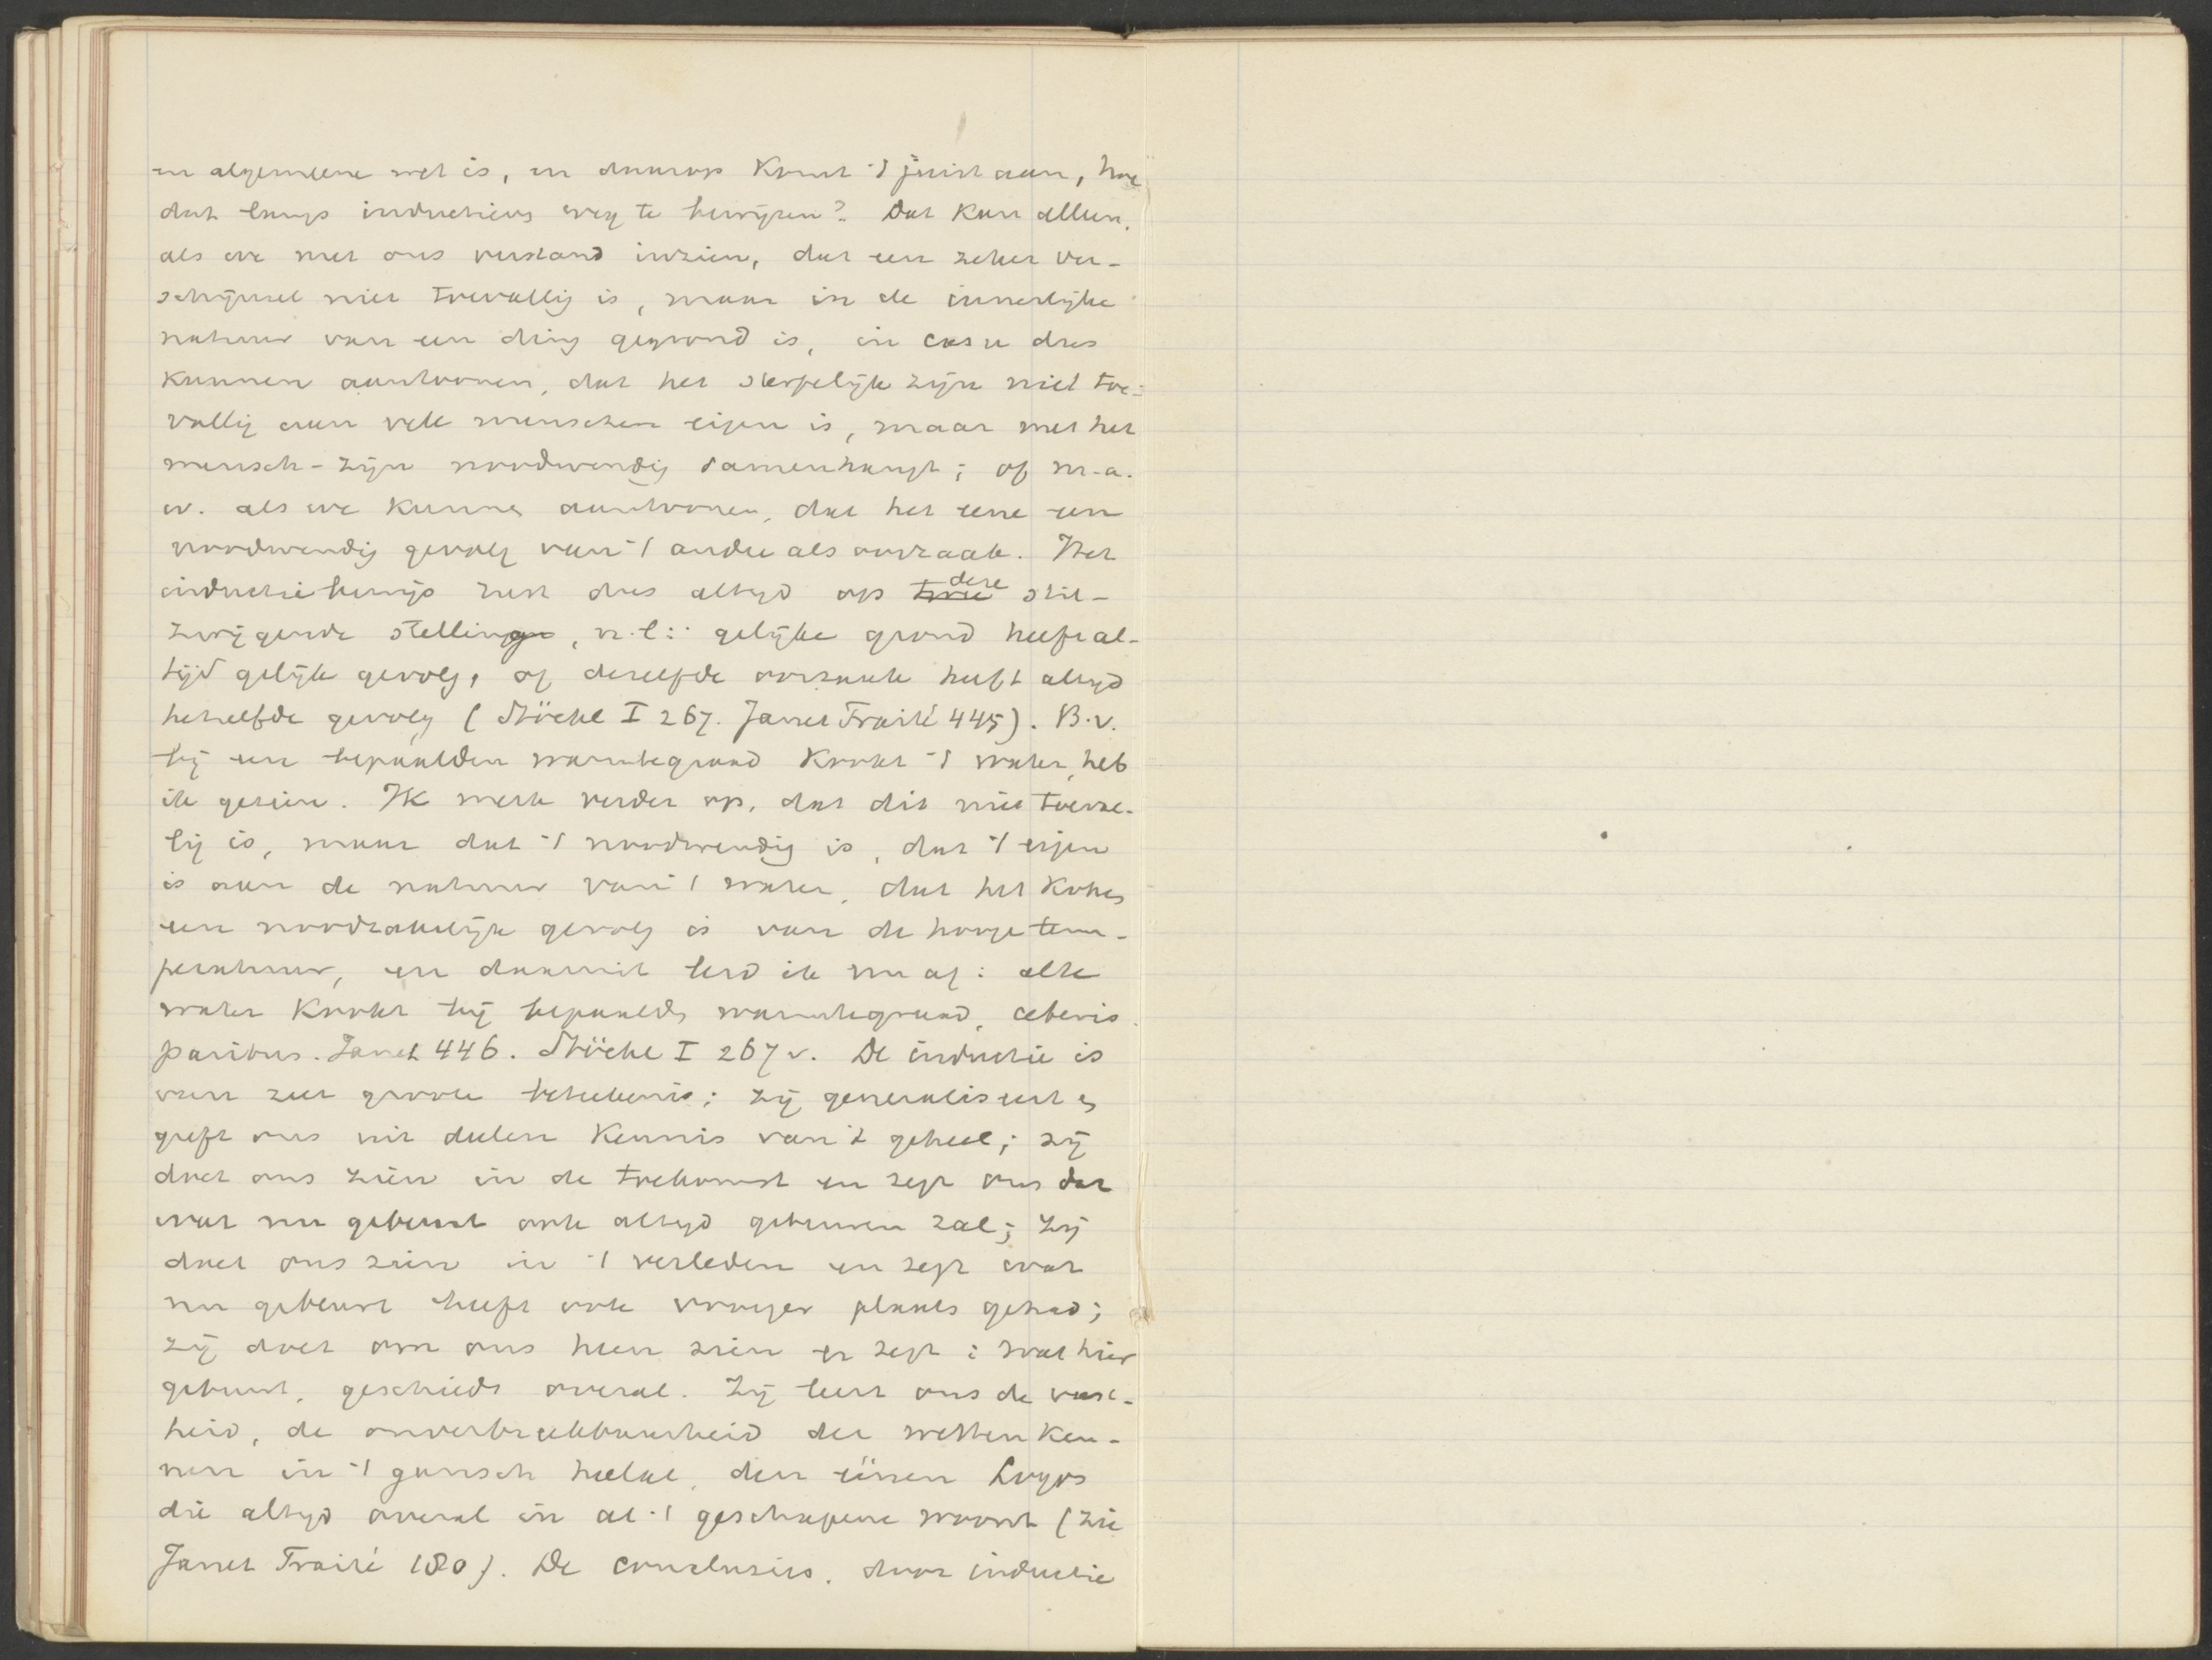 een algemeene wet is, en daarop komt 't juist aan, hoe
dat langs inductieve weg te bewijzen? Dat kan alleen,
als we met ons verstand inzien, dat een zeker ver-
schijnsel niet toevallig is, maar in de innerlijke
natuur van een ding gegrond is, in casu dus
kunnen aantoonen, dat het sterfelijk zijn niet toe-
vallig aan vele menschen eigen is, maar met het
mensch-zijn noodwendig samenhangt; of m.a.
w. als we kunnen aantoonen, dat het eene een
noodwendig gevolg van 't andere als oorzaak. Het
inductiebewijs rust dus altijd op twee deze stil-
zwijgende stelling, n.l: gelijke grond heeft al-
tijd gelijk gevolg, of dezelfde oorzaak heeft altijd
hetzelfde gevolg (Stöckl I 267. Janet Traité 445). B.v.
bij een bepaalden warmtegraad kookt 't water, heb
ik gezien. Ik merk verder op, dat dit niet toeval-
lig is, maar dat 't noodwendig is, dat 't eigen
is aan de natuur van 't water, dat het koken
een noodzakelijk gevolg is van de hooge tem-
peratuur, en daaruit leid ik nu af: alle
water kookt bij bepaalden warmtegraad, ceteris
paribus. Janet 446. Stöckl I 267 v. De inductie is
van zeer groote beteekenis; zij generaliseert en
geeft ons uit deelen kennis van 't geheel; zij
doet ons zien in de toekomst en zegt ons dat
wat nu gebeurt ook altijd gebeuren zal; zij
doet ons zien in 't verleden en zegt wat
nu gebeurt heeft ook vroeger plaats gehad;
zij doet om ons heen zien en zegt: wat hier
gebeurt, geschiedt overal. Zij leert ons de vast-
heid, de onverbreekbaarheid der wetten ken-
nen in 't gansch heelal, den éénen Logos
die altijd overal in al 't geschapene woont (zie
Janet Traité 180). De conclusies, door inductie